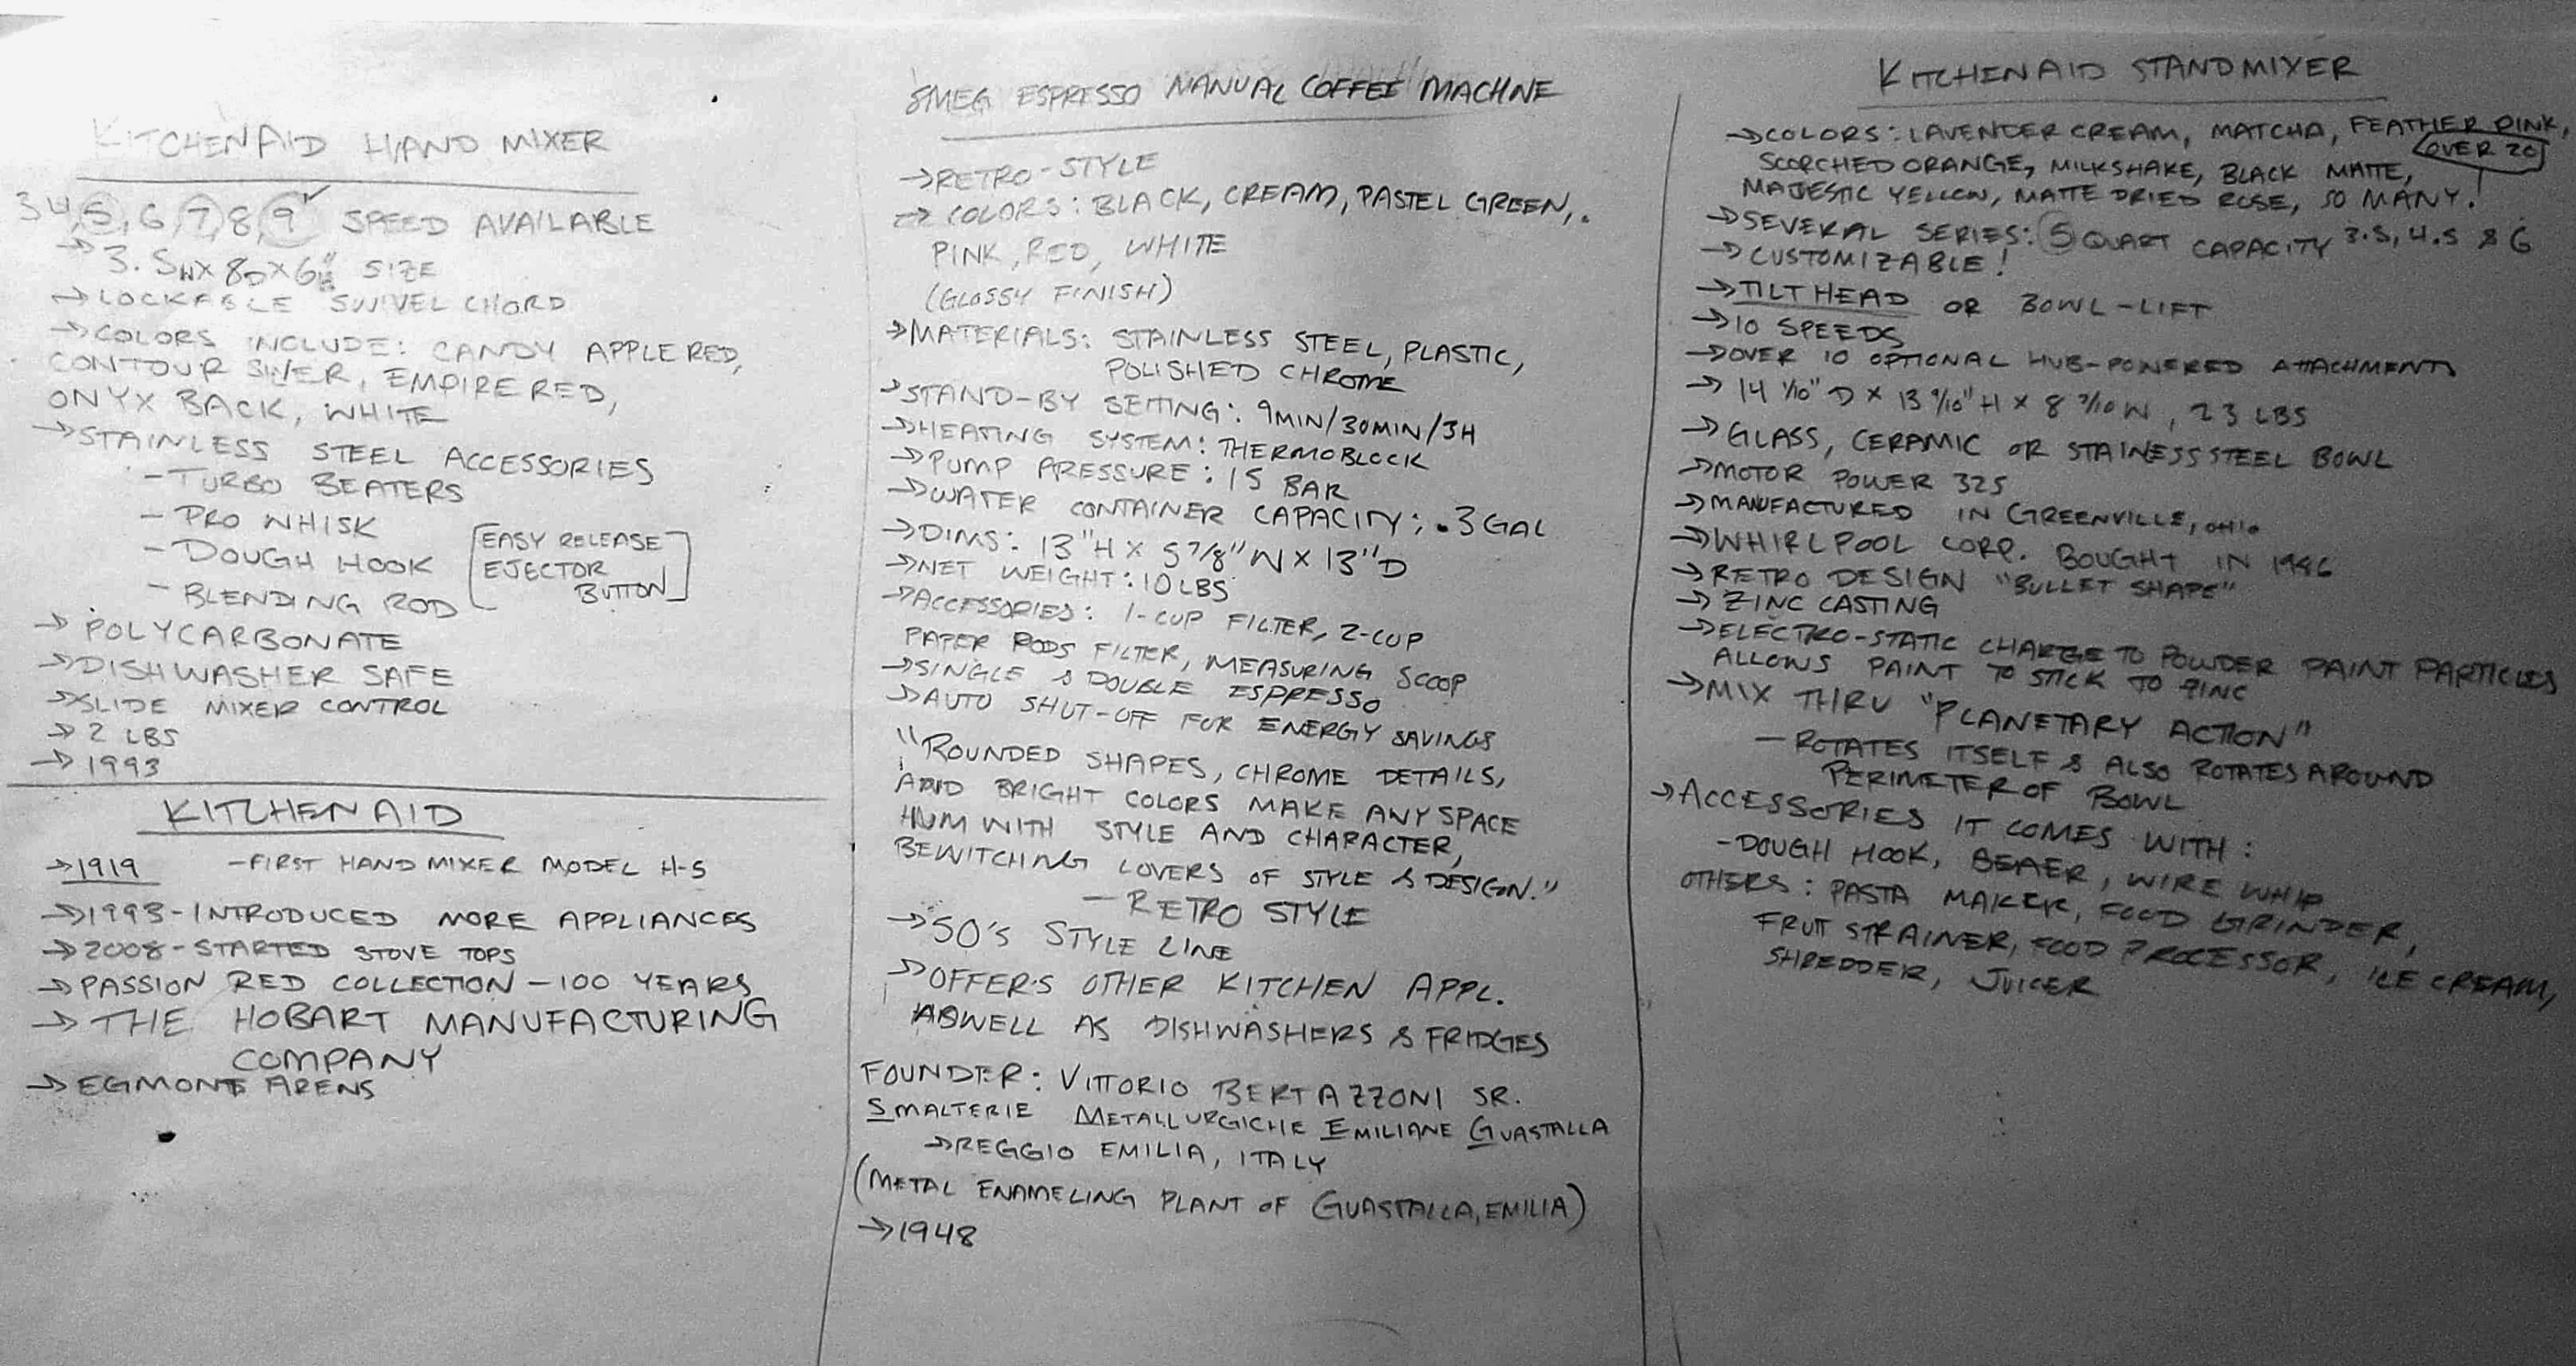 KITCHENAID HAND MIXER
3 4, 5, 6, 7, 8, 9 ✓ SPEED AVAILABLE
→ 3.5W X 8D X 6H" SIZE
→ LOCKABLE SWIVEL CHORD
→ COLORS INCLUDE: CANDY APPLE RED,
CONTOUR SILVER, EMPIRE RED,
ONYX BACK, WHITE
→ STAINLESS STEEL ACCESSORIES
- TURBO BEATERS
- PRO WHISK
- DOUGH HOOK
- BLENDING ROD
[EASY RELEASE
EJECTOR
BUTTON]
→ POLYCARBONATE
→ DISHWASHER SAFE
→ SLIDE MIXER CONTROL
→ 2 LBS
→ 1993
KITCHENAID
→ 1919 - FIRST HAND MIXER MODEL H-5
→ 1993 - INTRODUCED MORE APPLIANCES
→ 2008 - STARTED STOVE TOPS
→ PASSION RED COLLECTION - 100 YEARS
→ THE HOBART MANUFACTURING
COMPANY
→ EGMONT ARENS
SMEG ESPRESSO MANUAL COFFEE MACHNE
→ RETRO-STYLE
→ COLORS: BLACK, CREAM, PASTEL GREEN,
PINK, RED, WHITE
(GLOSSY FINISH)
→ MATERIALS: STAINLESS STEEL, PLASTIC,
POLISHED CHROME
→ STAND-BY SETTING: 9MIN/30MIN/3H
→ HEATING SYSTEM: THERMOBLOCK
→ PUMP PRESSURE: 15 BAR
→ WATER CONTAINER CAPACITY: .3 GAL
→ DIMS: 13"H X 5 7/8"W X 13"D
→ NET WEIGHT: 10 LBS
→ ACCESSORIES: 1-CUP FILTER, 2-CUP
PAPER PODS FILTER, MEASURING SCOOP
→ SINGLE & DOUBLE ESPRESSO
→ AUTO SHUT-OFF FOR ENERGY SAVINGS
"ROUNDED SHAPES, CHROME DETAILS,
AND BRIGHT COLORS MAKE ANY SPACE
HUM WITH STYLE AND CHARACTER,
BEWITCHING LOVERS OF STYLE & DESIGN."
- RETRO STYLE
→ 50'S STYLE LINE
→ OFFERS OTHER KITCHEN APPL.
ASWELL AS DISHWASHERS & FRIDGES
FOUNDER: VITTORIO BERTAZZONI SR.
SMALTERIE METALLURGICHE EMILIANE GUASTALLA
→ REGGIO EMILIA, ITALY
(METAL ENAMELING PLANT OF GUASTALLA, EMILIA)
→ 1948
KITCHENAID STANDMIXER
→ COLORS: LAVENDER CREAM, MATCHA, FEATHER PINK,
OVER 20
SCORCHED ORANGE, MILKSHAKE, BLACK MATTE,
MAJESTIC YELLOW, MATTE DRIED ROSE, SO MANY!
→ SEVERAL SERIES: 5 QUART CAPACITY 3.5, 4.5 & 6
→ CUSTOMIZABLE!
→ TILT HEAD OR BOWL-LIFT
→ 10 SPEEDS
→ OVER 10 OPTIONAL HUB-POWERED ATTACHMENTS
→ 14 1/10" D X 13 9/10" H X 8 7/10 W, 23 LBS
→ GLASS, CERAMIC OR STAINESS STEEL BOWL
→ MOTOR POWER 325
→ MANUFACTURED IN GREENVILLE, OHIO
→ WHIRLPOOL CORP. BOUGHT IN 1986
→ RETRO DESIGN "BULLET SHAPE"
→ ZINC CASTING
→ ELECTRO-STATIC CHARGE TO POWDER PAINT PARTICLES
ALLOWS PAINT TO STICK TO ZINC
→ MIX THRU "PLANETARY ACTION"
- ROTATES ITSELF & ALSO ROTATES AROUND
PERIMETER OF BOWL
→ ACCESSORIES IT COMES WITH:
- DOUGH HOOK, BEAER, WIRE WHIP
OTHERS: PASTA MAKER, FOOD GRINDER,
FRUIT STRAINER, FOOD PROCESSOR, ICE CREAM,
SHREDDER, JUICER